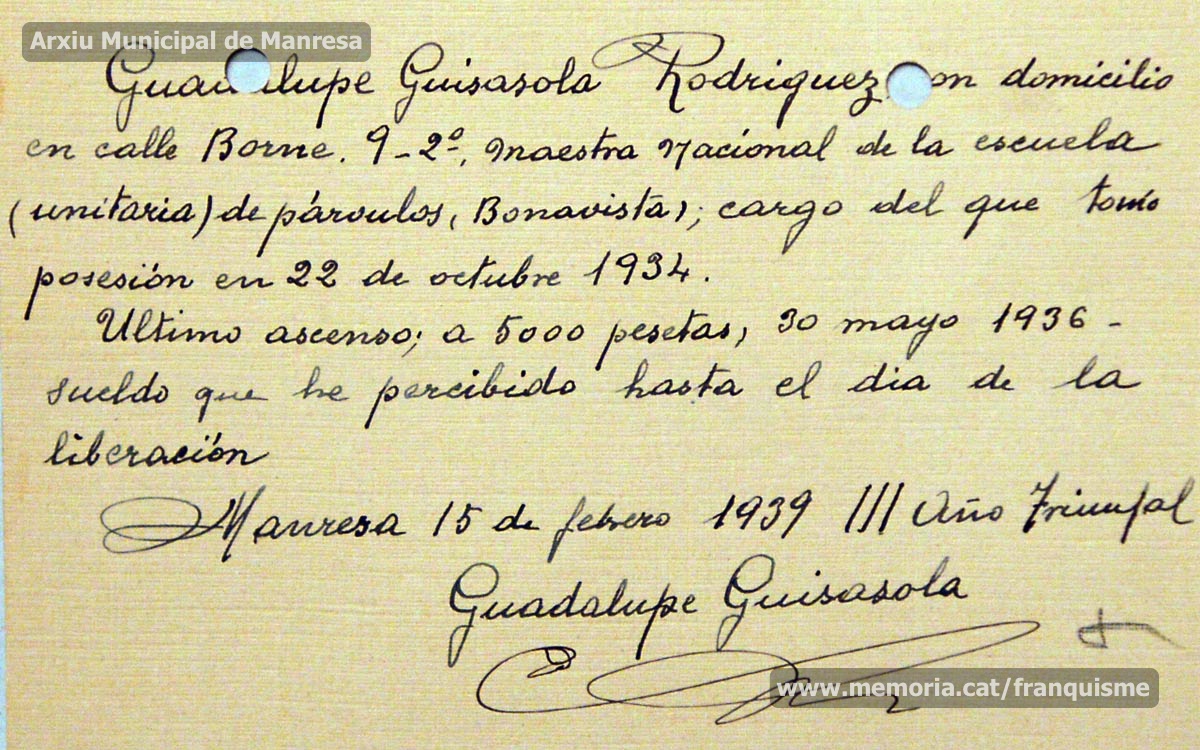 Arxiu Municipal de Manresa
Guadalupe Guisasola Rodriguez con domicilio
en calle Borne. 9-2º, maestra nacional de la escuela
(unitaria) de párvulos, Bonavista,; cargo del que tomó
posesión en 22 de octubre 1934.
Ultimo ascenso; a 5000 pesetas, 30 mayo 1936 -
sueldo que he percibido hasta el dia de la
liberación
Manresa 15 de febrero 1939 III Año Triunfal
Guadalupe Guisasola
www.memoria.cat/franquisme